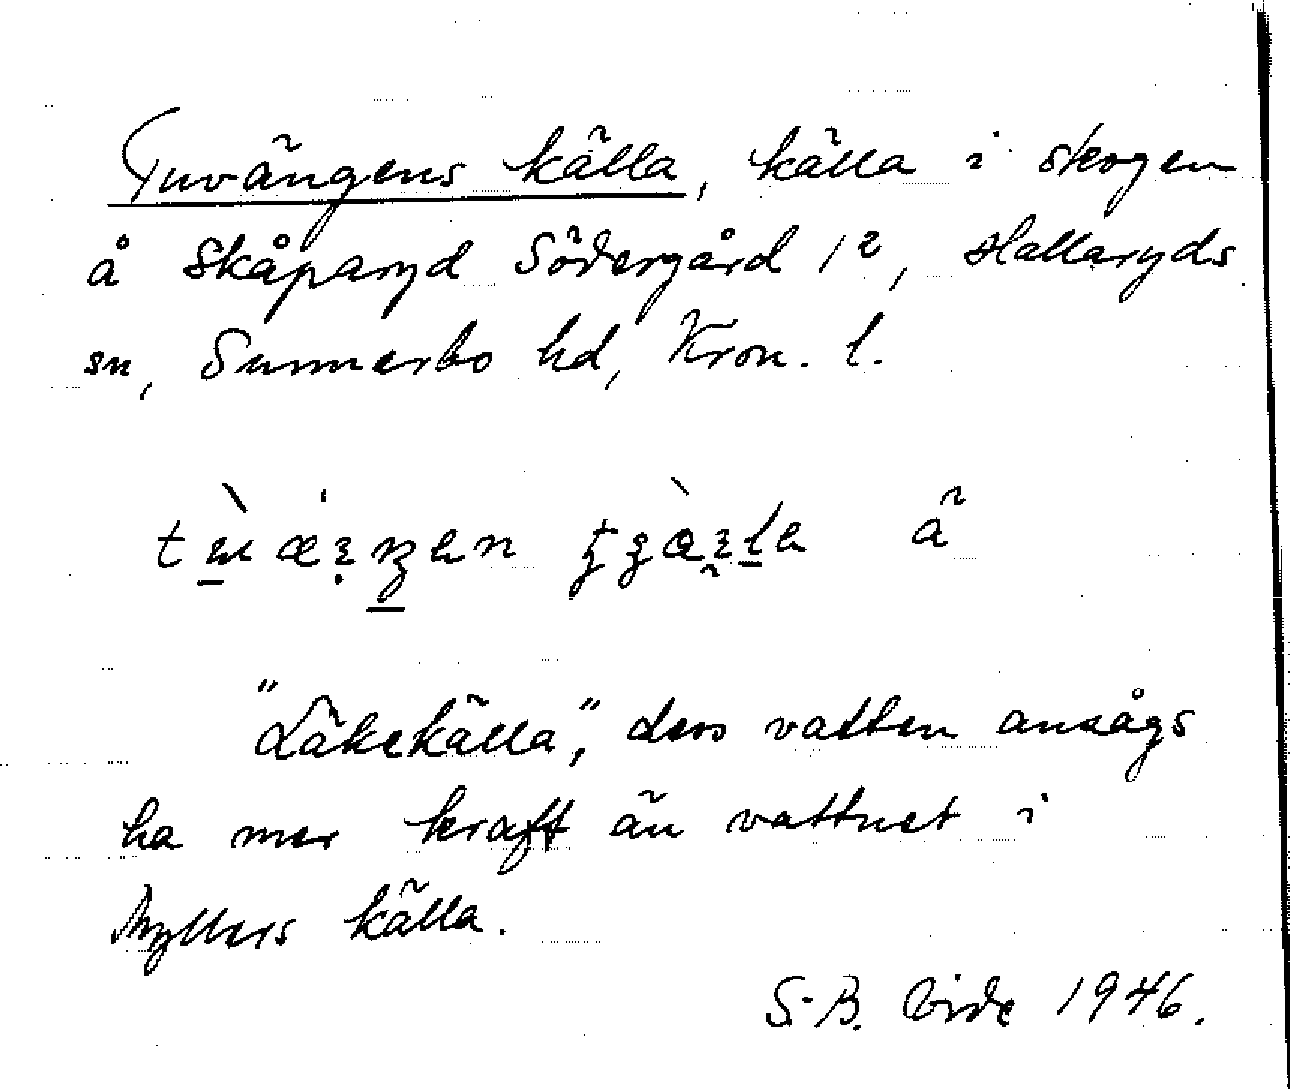 Tuvängens källa, källa i skogen
å Skåparyd Södergård 1², Hallaryds
sn, Sunnerbo hd, Kron. l.
ä
"Läkekälla", dess vatten ansågs
ha mer kraft än vattnet i
Myllers källa.
S-B. 1946.